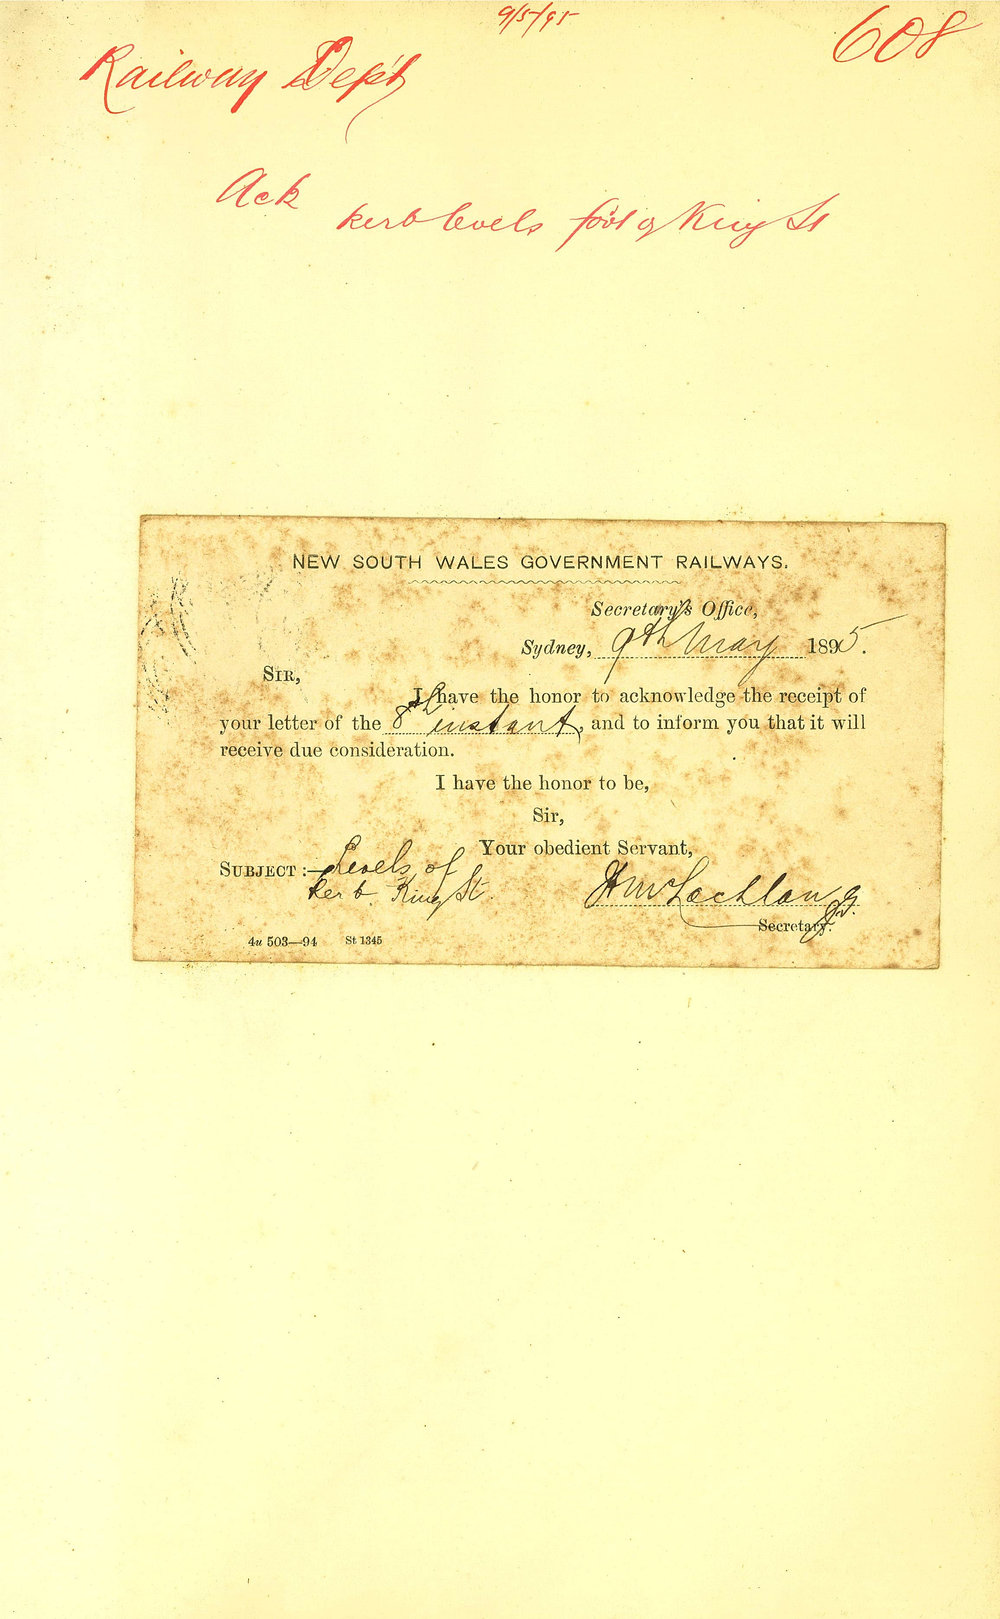 9/5/95
608
Railway Dep't
Ack
kerb levels foot of King St
NEW SOUTH WALES GOVERNMENT RAILWAYS.
Secretary's Office,
Sydney, 9th May 1895.
SIR,
I have the honor to acknowledge the receipt of
your letter of the 8th instant, and to inform you that it will
receive due consideration.
I have the honor to be,
Sir,
Your obedient Servant,
SUBJECT:—Levels of
Kerb. King St.
H McLachlan
Secretary.
4u 503—94 St 1345